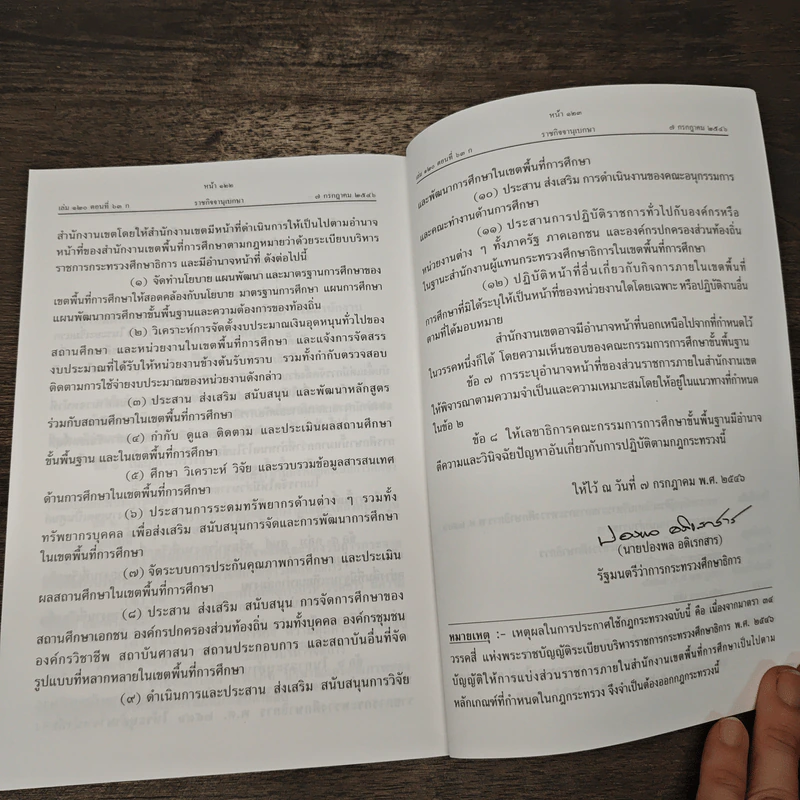 หน้า ๑๒๒
เล่ม ๑๒๐ ตอนที่ ๖๓ ก ราชกิจจานุเบกษา ๗ กรกฎาคม ๒๕๔๖
สำนักงานเขตโดยให้สำนักงานเขตมีหน้าที่ดำเนินการให้เป็นไปตามอำนาจ
หน้าที่ของสำนักงานเขตพื้นที่การศึกษาตามกฎหมายว่าด้วยระเบียบบริหาร
ราชการกระทรวงศึกษาธิการ และมีอำนาจหน้าที่ ดังต่อไปนี้
(๑) จัดทำนโยบาย แผนพัฒนา และมาตรฐานการศึกษาของ
เขตพื้นที่การศึกษาให้สอดคล้องกับนโยบาย มาตรฐานการศึกษา แผนการศึกษา
แผนพัฒนาการศึกษาขั้นพื้นฐานและความต้องการของท้องถิ่น
(๒) วิเคราะห์การจัดตั้งงบประมาณเงินอุดหนุนทั่วไปของ
สถานศึกษา และหน่วยงานในเขตพื้นที่การศึกษา และแจ้งการจัดสรร
งบประมาณที่ได้รับให้หน่วยงานข้างต้นรับทราบ รวมทั้งกำกับตรวจสอบ
ติดตามการใช้จ่ายงบประมาณของหน่วยงานดังกล่าว
(๓) ประสาน ส่งเสริม สนับสนุน และพัฒนาหลักสูตร
ร่วมกับสถานศึกษาในเขตพื้นที่การศึกษา
(๔) กำกับ ดูแล ติดตาม และประเมินผลสถานศึกษา
ขั้นพื้นฐาน และในเขตพื้นที่การศึกษา
(๕) ศึกษา วิเคราะห์ วิจัย และรวบรวมข้อมูลสารสนเทศ
ด้านการศึกษาในเขตพื้นที่การศึกษา
(๖) ประสานการระดมทรัพยากรด้านต่าง ๆ รวมทั้ง
ทรัพยากรบุคคล เพื่อส่งเสริม สนับสนุนการจัดและการพัฒนาการศึกษา
ในเขตพื้นที่การศึกษา
(๗) จัดระบบการประกันคุณภาพการศึกษา และประเมิน
ผลสถานศึกษาในเขตพื้นที่การศึกษา
(๘) ประสาน ส่งเสริม สนับสนุน การจัดการศึกษาของ
สถานศึกษาเอกชน องค์กรปกครองส่วนท้องถิ่น รวมทั้งบุคคล องค์กรชุมชน
องค์กรวิชาชีพ สถาบันศาสนา สถานประกอบการ และสถาบันอื่นที่จัด
รูปแบบที่หลากหลายในเขตพื้นที่การศึกษา
(๙) ดำเนินการและประสาน ส่งเสริม สนับสนุนการวิจัย
หน้า ๑๒๓
เล่ม ๑๒๐ ตอนที่ ๖๓ ก ราชกิจจานุเบกษา ๗ กรกฎาคม ๒๕๔๖
และพัฒนาการศึกษาในเขตพื้นที่การศึกษา
(๑๐) ประสาน ส่งเสริม การดำเนินงานของคณะอนุกรรมการ
และคณะทำงานด้านการศึกษา
(๑๑) ประสานการปฏิบัติราชการทั่วไปกับองค์กรหรือ
หน่วยงานต่าง ๆ ทั้งภาครัฐ ภาคเอกชน และองค์กรปกครองส่วนท้องถิ่น
ในฐานะสำนักงานผู้แทนกระทรวงศึกษาธิการในเขตพื้นที่การศึกษา
(๑๒) ปฏิบัติหน้าที่อื่นเกี่ยวกับกิจการภายในเขตพื้นที่
การศึกษาที่มิได้ระบุให้เป็นหน้าที่ของหน่วยงานใดโดยเฉพาะ หรือปฏิบัติงานอื่น
ตามที่ได้มอบหมาย
สำนักงานเขตอาจมีอำนาจหน้าที่นอกเหนือไปจากที่กำหนดไว้
ในวรรคหนึ่งก็ได้ โดยความเห็นชอบของคณะกรรมการการศึกษาขั้นพื้นฐาน
ข้อ ๗ การระบุอำนาจหน้าที่ของส่วนราชการภายในสำนักงานเขต
ให้พิจารณาตามความจำเป็นและความเหมาะสมโดยให้อยู่ในแนวทางที่กำหนด
ในข้อ ๒
ข้อ ๘ ให้เลขาธิการคณะกรรมการการศึกษาขั้นพื้นฐานมีอำนาจ
ตีความและวินิจฉัยปัญหาอันเกี่ยวกับการปฏิบัติตามกฎกระทรวงนี้
ให้ไว้ ณ วันที่ ๗ กรกฎาคม พ.ศ. ๒๕๔๖
ปองพล อดิเรกสาร
(นายปองพล อดิเรกสาร)
รัฐมนตรีว่าการกระทรวงศึกษาธิการ
หมายเหตุ :- เหตุผลในการประกาศใช้กฎกระทรวงฉบับนี้ คือ เนื่องจากมาตรา ๓๔
วรรคสี่ แห่งพระราชบัญญัติระเบียบบริหารราชการกระทรวงศึกษาธิการ พ.ศ. ๒๕๔๖
บัญญัติให้การแบ่งส่วนราชการภายในสำนักงานเขตพื้นที่การศึกษาเป็นไปตาม
หลักเกณฑ์ที่กำหนดในกฎกระทรวง จึงจำเป็นต้องออกกฎกระทรวงนี้